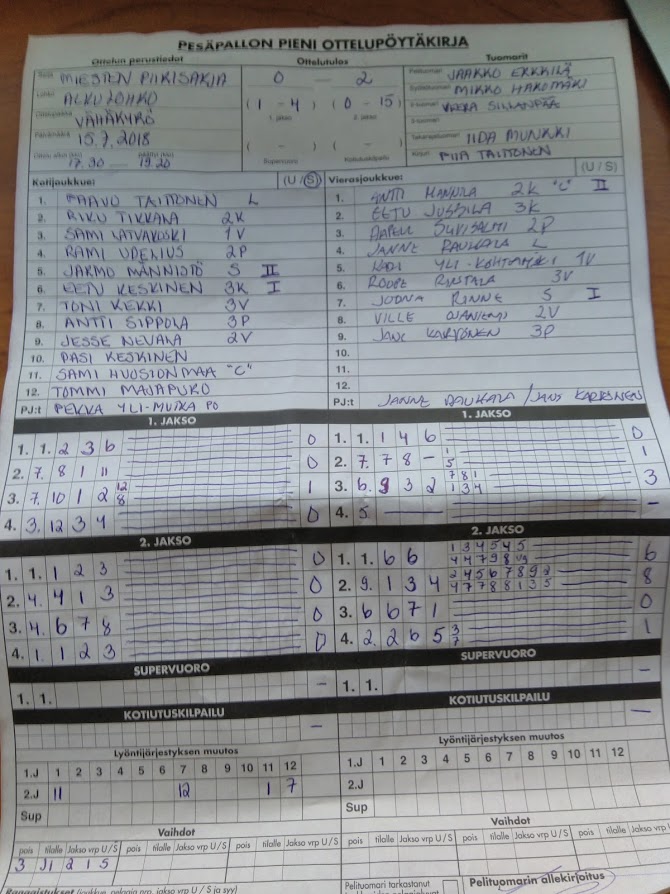 PESÄPALLON PIENI OTTELUPÖYTÄKIRJA
Ottelun perustiedot Ottelutulos Tuomarit
MIESTEN 0 – 2 JAAKKO ERKKILÄ
ALKULOHKO (1 – 4) (0 – 15) MIKKO HAKOMÄKI
VÄHÄKYRÖ 1. jakso 2. jakso VEERA SILLANPÄÄ
15.7.2018 ( – ) ( – ) IIDA MUNKKI
17.30 19.20 Supervuoro Kotiutuskilpailu PIIA TAITTONEN
Kotijoukkue: (U / S) Vierasjoukkue: (U / S)
1. PAAVO TAITTONEN L 1. ANTTI MANNILA 2K "C" II
2. RIKU TIKKALA 2K 2. EETU JUSSILA 3K
3. SAMI LATVAKOSKI 1V 3. 2P
4. RAMI UDENIUS 2P 4. JANNE RAUHALA L
5. JARMO MÄNNISTÖ S II 5. YLI- 1V
6. EETU KESKINEN 3K I 6. ROOPE RINTALA 3V
7. TONI KEKKI 3V 7. JOONA RINNE S I
8. ANTTI SIPPOLA 3P 8. VILLE OJANIEMI 2V
9. JESSE NEVALA 2V 9. JANI KARVONEN 3P
10. PASI KESKINEN 10.
11. SAMI HUOSIONMAA "C" 11.
12. TOMMI MAJAPURO 12.
PJ:t PEKKA YLI-MUTKA PJ:t JANNE RAUHALA / JANI KARVONEN
1. JAKSO 1. JAKSO
1. 1. 2 3 6 0 1. 1. 1 4 6 0
2. 7. 8 1 11 0 2. 7. 7 8 – 1 5 1
3. 7. 10 1 2 12 8 1 3. 6. 9 3 2 7 8 1 1 3 4 3
4. 3. 12 3 4 0 4. 5. –
2. JAKSO 2. JAKSO
1. 1. 1 2 3 0 1. 1. 6 6 1 3 4 5 4 5 4 4 7 9 8 6
2. 4. 4 1 3 0 2. 9. 1 3 4 2 4 5 6 7 8 9 4 7 7 8 8 1 3 5 8
3. 4. 6 7 8 0 3. 6 6 7 1 0
4. 1. 1 2 3 0 4. 2. 2 6 5 3 7 1
SUPERVUORO SUPERVUORO
1. 1. – 1. 1. –
KOTIUTUSKILPAILU KOTIUTUSKILPAILU
– –
Lyöntijärjestyksen muutos Lyöntijärjestyksen muutos
1.J 1 2 3 4 5 6 7 8 9 10 11 12 1.J 1 2 3 4 5 6 7 8 9 10 11 12
2.J 11 12 1 7 2.J
Sup Sup
Vaihdot Vaihdot
pois tilalle Jakso vrp U / S pois tilalle Jakso vrp U / S pois tilalle Jakso vrp U / S pois tilalle Jakso vrp U / S
3 2 1 5
Pelituomari tarkastanut Pelituomarin allekirjoitus